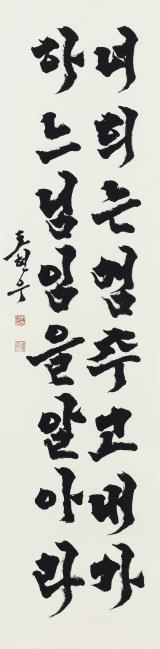 너희는멈추고내가
하느님임을알아라